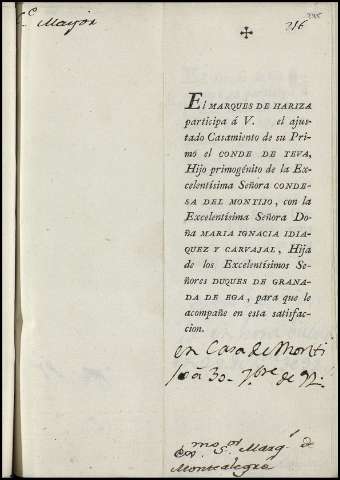 Mayor
216
EL MARQUES DE HARIZA
participa á V. el ajus-
tado Casamiento de su Pri-
mo el CONDE DE TEVA,
Hijo primogénito de la Ex-
celentísima Señora CONDE-
SA DEL MONTIJO, con la
Excelentísima Señora Do-
ña MARIA IGNACIA IDIA-
QUEZ Y CARVAJAL, Hija
de los Excelentísimos Se-
ñores DUQUES DE GRANA-
DA DE EGA, para que le
acompañe en esta satisfac-
cion.
en Casa de Monti
jo á 30. 7bre de 91
Exmo. Sor. Marq.s de
Montealegre